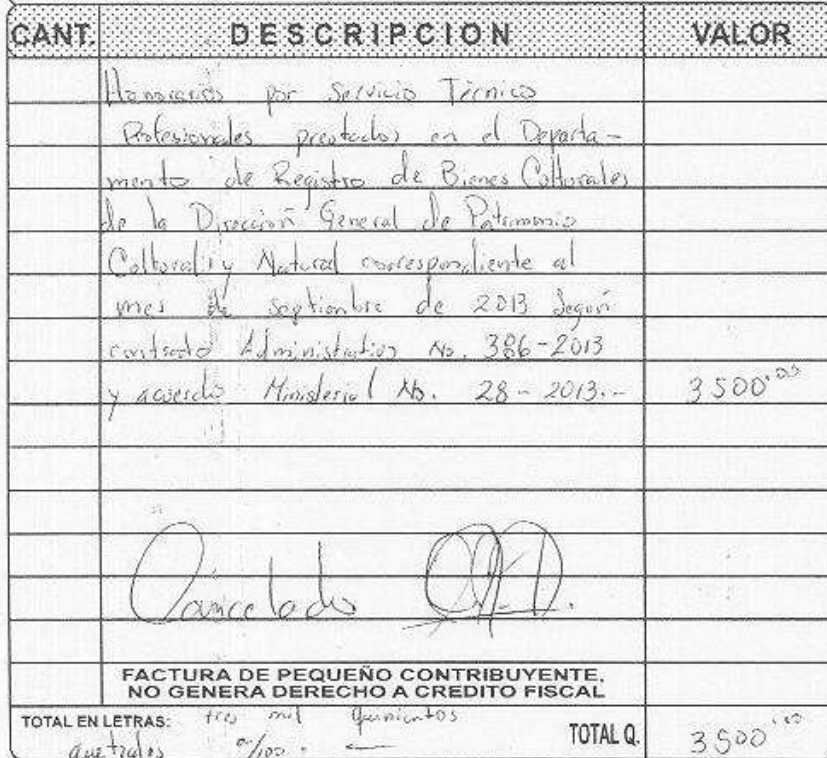 CANT. DESCRIPCION VALOR
Honorarios por Servicio Técnico
Profesionales prestados en el Departa-
mento de Registro de Bienes Culturales
de la Dirección General de Patrimonio
Cultural y Natural correspondiente al
mes de septiembre de 2013 Según
contrato Administrativo No. 386-2013
y acuerdo Ministerial No. 28-2013.- 3500.00
Cancelado
FACTURA DE PEQUEÑO CONTRIBUYENTE,
NO GENERA DERECHO A CREDITO FISCAL
TOTAL EN LETRAS: tres mil quinientos
quetzales 00/100. TOTAL Q. 3500.00